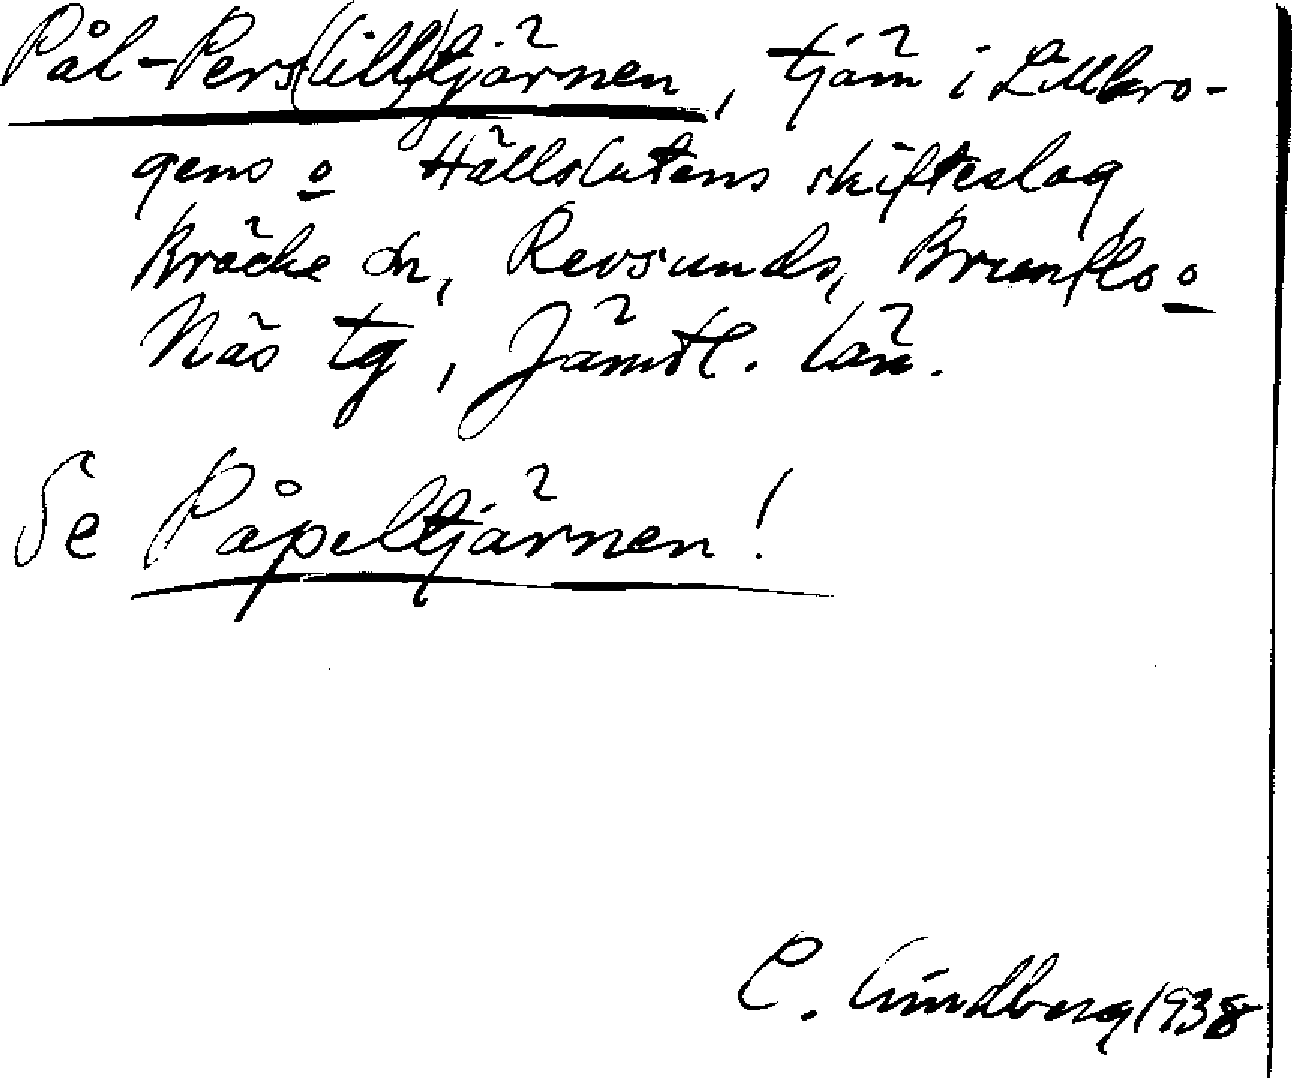 Pål-Pers(lill)tjärnen, tjärn i Lillkro-
gens o Hällslutens skifteslag
Bräcke sn, Revsunds, Brunflo o
Näs tg, Jämtl. län.
Se Påpeltjärnen!
C. Lindberg 1938